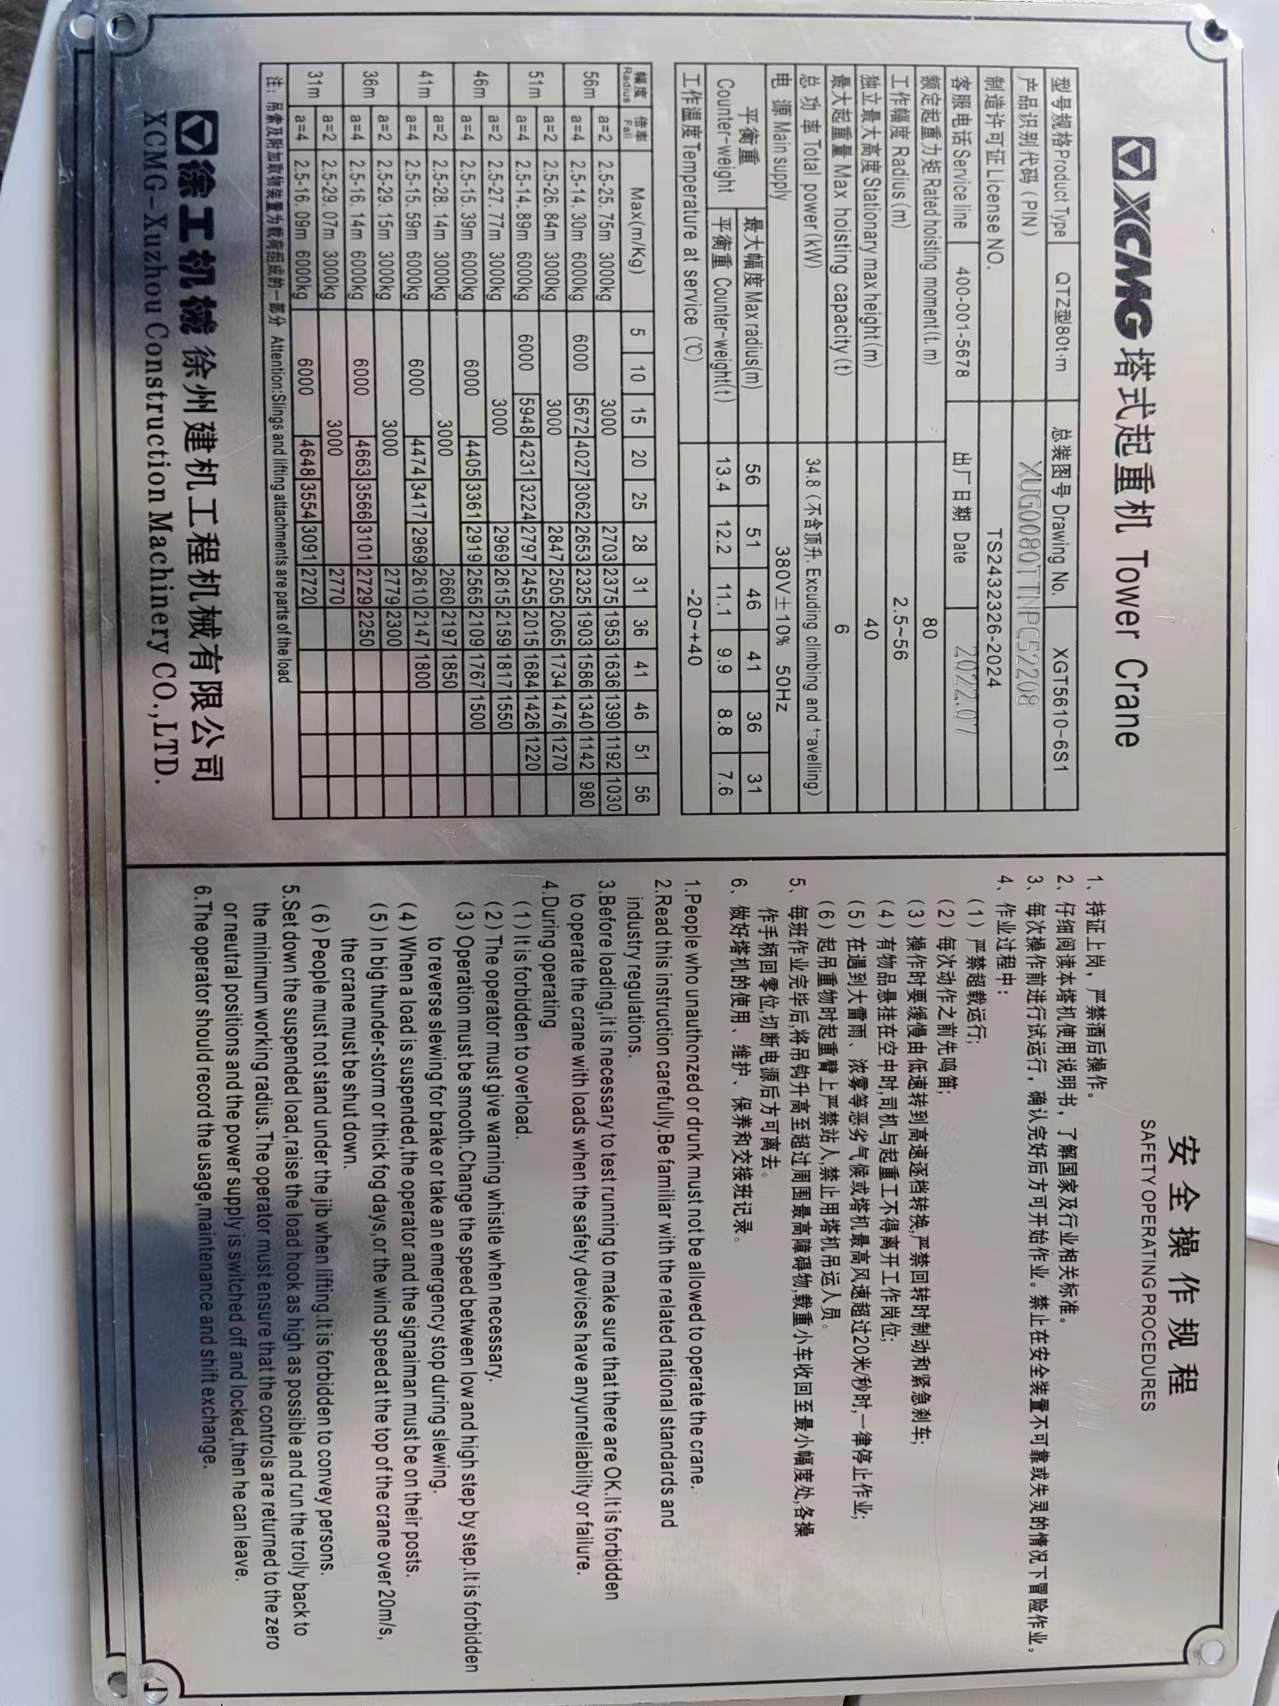 XCMG 塔式起重机 Tower Crane
型号规格Product Type QTZ型80t·m 总装图号 Drawing No. XGT5610-6S1
产品识别代码（PIN） XUG0080TTNPC52208
制造许可证License NO. TS2432326-2024
客服电话Service line 400-001-5678 出厂日期 Date 2022.07
额定起重力矩 Rated hoisting moment(t.m) 80
工作幅度 Radius(m) 2.5~56
独立最大高度 Stationary max height(m) 40
最大起重量 Max hoisting capacity(t) 6
总功率 Total power(kW) 34.8（不含顶升. Excuding climbing and travelling）
电 源 Main supply 380V±10% 50Hz
平衡重 Counter-weight 最大幅度 Max radius(m) 56 51 46 41 36 31
平衡重 Counter-weight(t) 13.4 12.2 11.1 9.9 8.8 7.6
工作温度 Temperature at service (℃) -20~+40
幅度 Radius 倍率 Fall Max(m/Kg) 5 10 15 20 25 28 31 36 41 46 51 56
56m a=2 2.5-25.75m 3000kg 3000 2703 2375 1953 1636 1390 1192 1030
a=4 2.5-14.30m 6000kg 6000 5672 4027 3062 2653 2325 1903 1586 1340 1142 980
51m a=2 2.5-26.84m 3000kg 3000 2847 2505 2065 1734 1476 1270
a=4 2.5-14.89m 6000kg 6000 5948 4231 3224 2797 2455 2015 1684 1426 1220
46m a=2 2.5-27.77m 3000kg 3000 2969 2615 2159 1817 1550
a=4 2.5-15.39m 6000kg 6000 4405 3361 2919 2565 2109 1767 1500
41m a=2 2.5-28.14m 3000kg 3000 2660 2197 1850
a=4 2.5-15.59m 6000kg 6000 4474 3417 2969 2610 2147 1800
36m a=2 2.5-29.15m 3000kg 3000 2779 2300
a=4 2.5-16.14m 6000kg 6000 4663 3566 3101 2729 2250
31m a=2 2.5-29.07m 3000kg 3000 2770
a=4 2.5-16.09m 6000kg 6000 4648 3554 3091 2720
注：吊索及附加取物装置为载荷组成的一部分 Attention:Slings and lifting attachments are parts of the load
徐工机械 徐州建机工程机械有限公司
XCMG-Xuzhou Construction Machinery CO.,LTD.
安全操作规程
SAFETY OPERATING PROCEDURES
1、持证上岗，严禁酒后操作。
2、仔细阅读本塔机使用说明书，了解国家及行业相关标准。
3、每次操作前进行试运行，确认完好后方可开始作业。禁止在安全装置不可靠或失灵的情况下冒险作业。
4、作业过程中：
（1）严禁超载运行;
（2）每次动作之前先鸣笛;
（3）操作时要缓慢由低速转到高速逐档转换,严禁回转时制动和紧急刹车;
（4）有物品悬挂在空中时,司机与起重工不得离开工作岗位;
（5）在遇到大雷雨、浓雾等恶劣气候或塔机最高风速超过20米/秒时,一律停止作业;
（6）起吊重物时起重臂上严禁站人,禁止用塔机吊运人员。
5、每班作业完毕后,将吊钩升高至超过周围最高障碍物,载重小车收回至最小幅度处,各操
作手柄回零位,切断电源后方可离去。
6、做好塔机的使用、维护、保养和交接班记录。
1.People who unauthonzed or drunk must not be allowed to operate the crane.
2.Read this instruction carefully.Be familiar with the related national standards and
industry regulations.
3.Before loading,it is necessary to test running to make sure that there are OK.It is forbidden
to operate the crane with loads when the safety devices have anyunreliability or failure.
4.During operating
(1) It is forbidden to overload.
(2) The operator must give warning whistle when necessary.
(3) Operation must be smooth.Change the speed between low and high step by step.It is forbidden
to reverse slewing for brake or take an emergency stop during slewing.
(4) When a load is suspended,the operator and the signaiman must be on their posts.
(5) In big thunder-storm or thick fog days,or the wind speed at the top of the crane over 20m/s,
the crane must be shut down.
(6) People must not stand under the jib when lifting.It is forbidden to convey persons.
5.Set down the suspended load,raise the load hook as high as possible and run the trolly back to
the minimum working radius.The operator must ensure that the controls are returned to the zero
or neutral positions and the power supply is switched off and locked,then he can leave.
6.The operator should record the usage,maintenance and shift exchange.